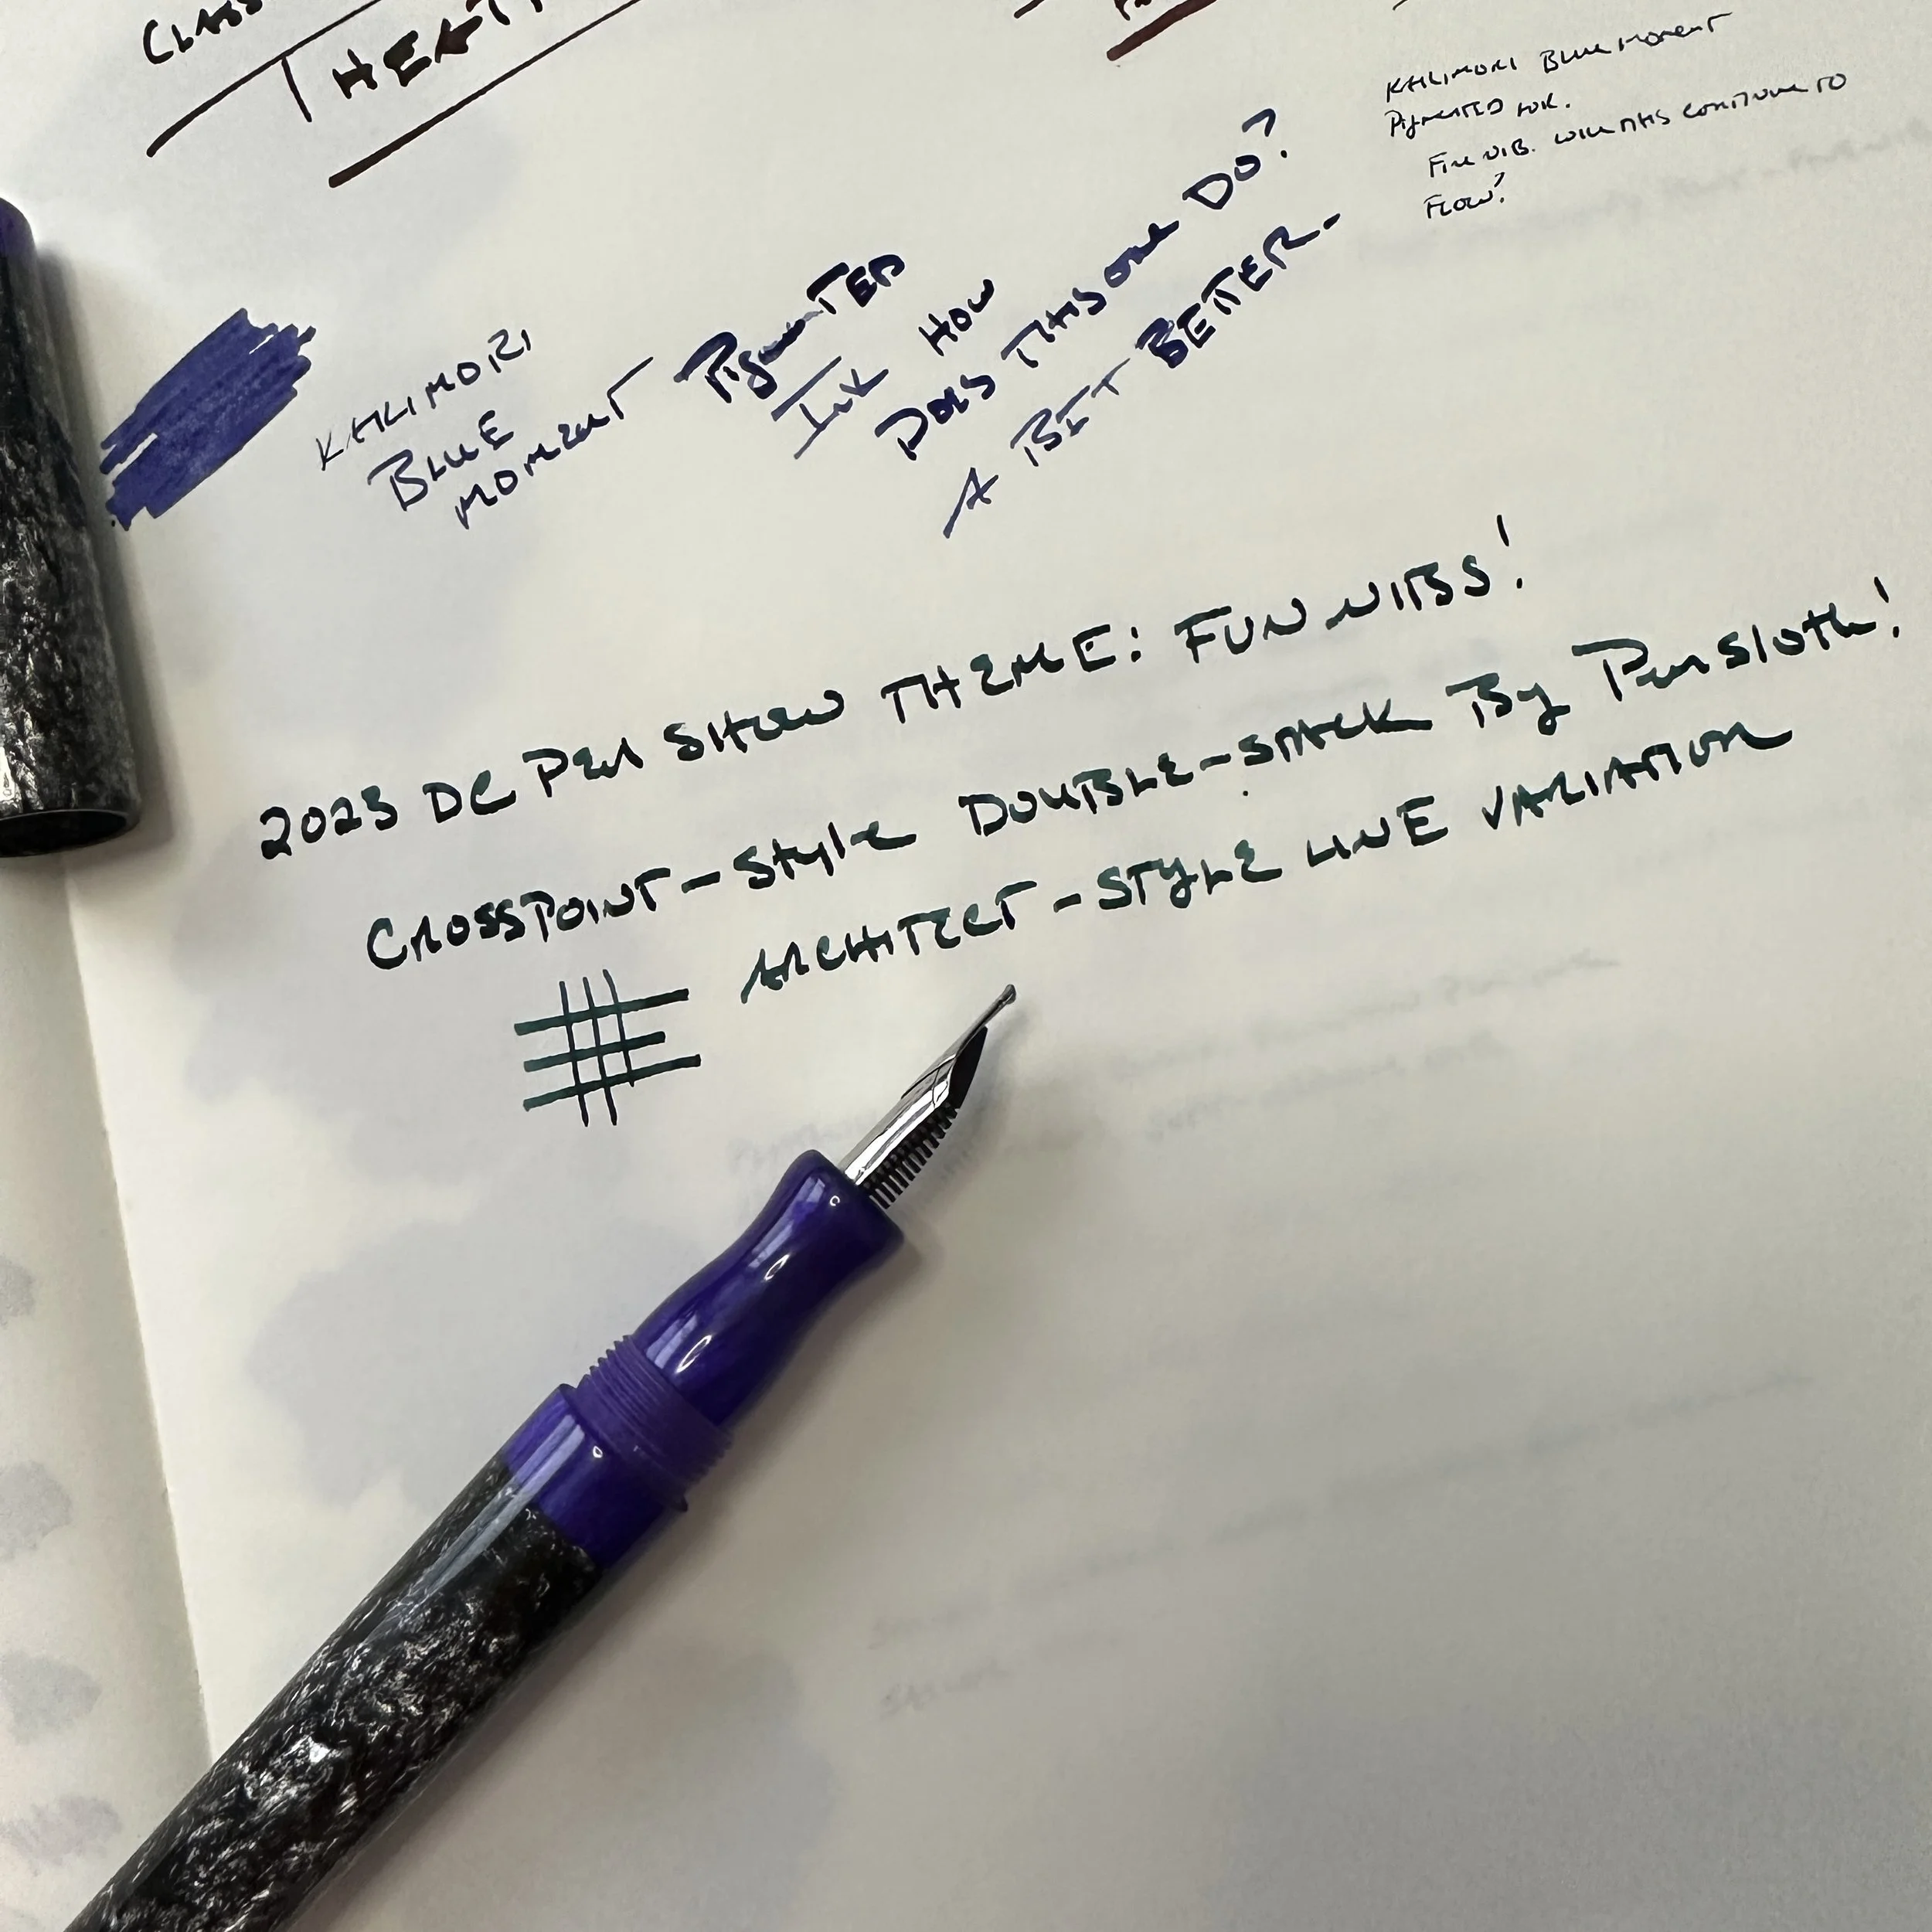 CLASS
THEAT
KAKIMORI BLUE MOMENT
PIGMENTED INK.
FINE NIB. WILL THIS CONTINUE TO
FLOW?
KAKIMORI
BLUE
MOMENT
PIGMENTED
INK HOW
DOES THIS ONE DO?
A BIT BETTER.
2023 DC PEN SHOW THEME: FUN NIBS!
CROSSPOINT-STYLE DOUBLE-STACK BY PENSLOTH!
ARCHITECT-STYLE LINE VARIATION